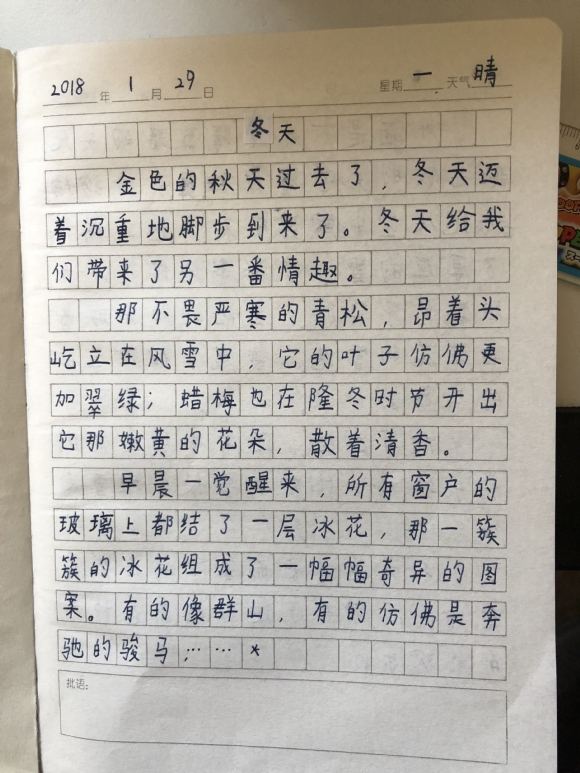 2018年1月29日 星期一 天气晴
冬天
金色的秋天过去了，冬天迈
着沉重地脚步到来了。冬天给我
们带来了另一番情趣。
那不畏严寒的青松，昂着头
屹立在风雪中，它的叶子仿佛更
加翠绿；蜡梅也在隆冬时节开出
它那嫩黄的花朵，散着清香。
早晨一觉醒来，所有窗户的
玻璃上都结了一层冰花，那一簇
簇的冰花组成了一幅幅奇异的图
案。有的像群山，有的仿佛是奔
驰的骏马；……*
批语：